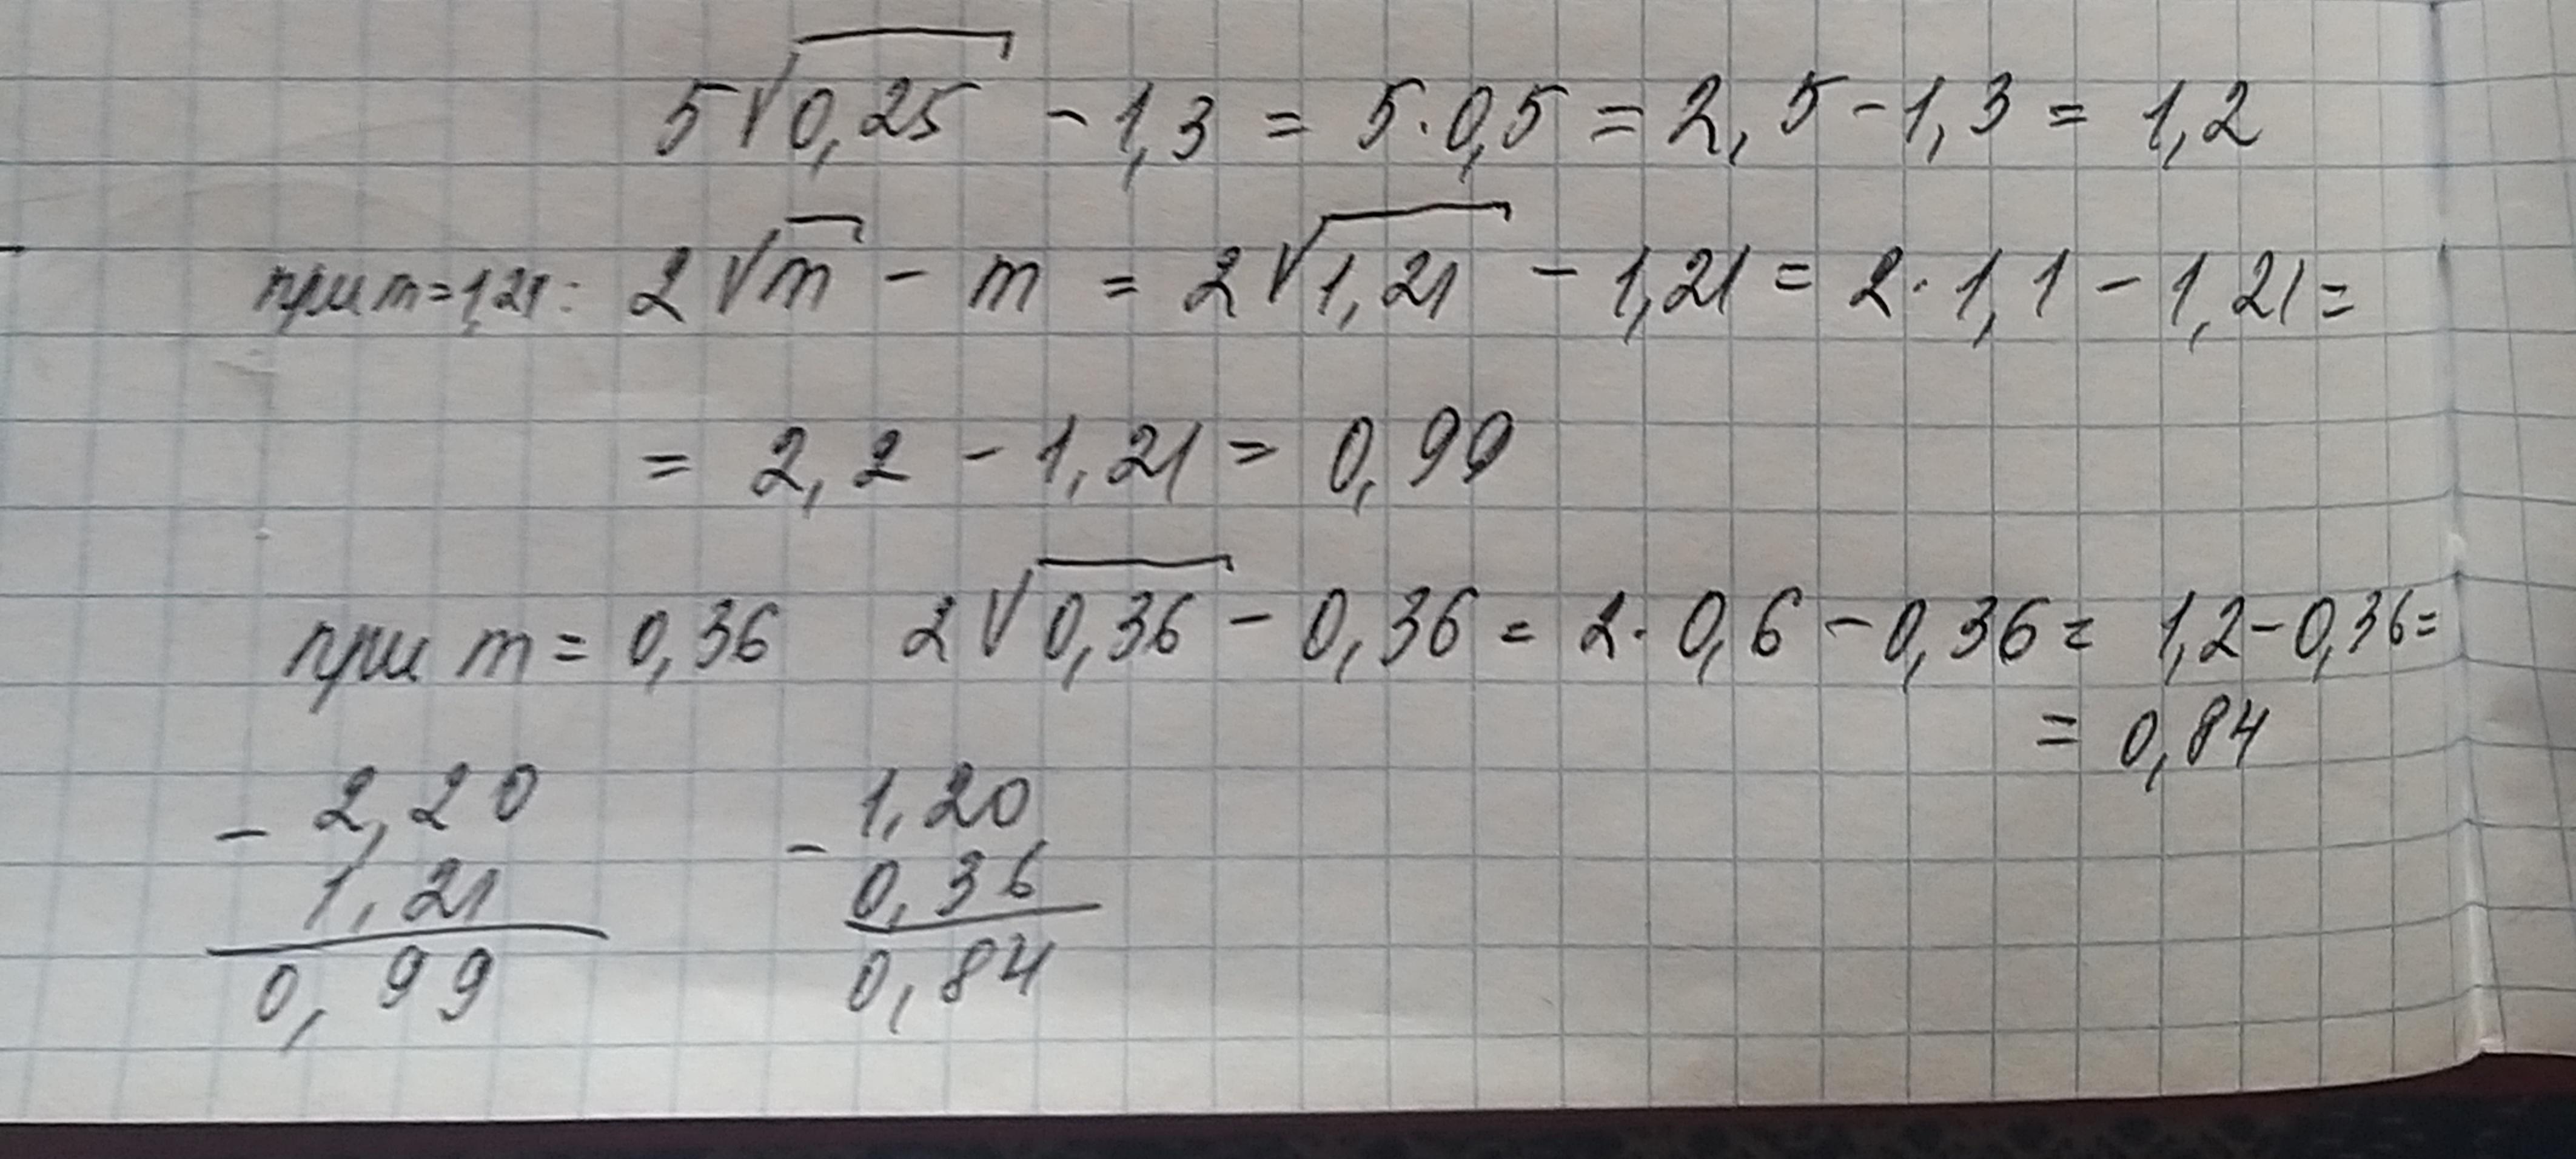 5√0,25 - 1,3 = 5·0,5 = 2,5 - 1,3 = 1,2
при m=1,21: 2√m - m = 2√1,21 - 1,21 = 2·1,1 - 1,21 =
= 2,2 - 1,21 = 0,99
при m = 0,36 2√0,36 - 0,36 = 2·0,6 - 0,36 = 1,2 - 0,36 =
= 0,84
- 2,20
1,21
0,99
- 1,20
0,36
0,84